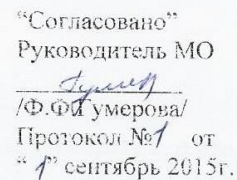 “Согласовано”
Руководитель МО
/Ф.ФГумерова/
Протокол №1 от
“1” сентябрь 2015г.